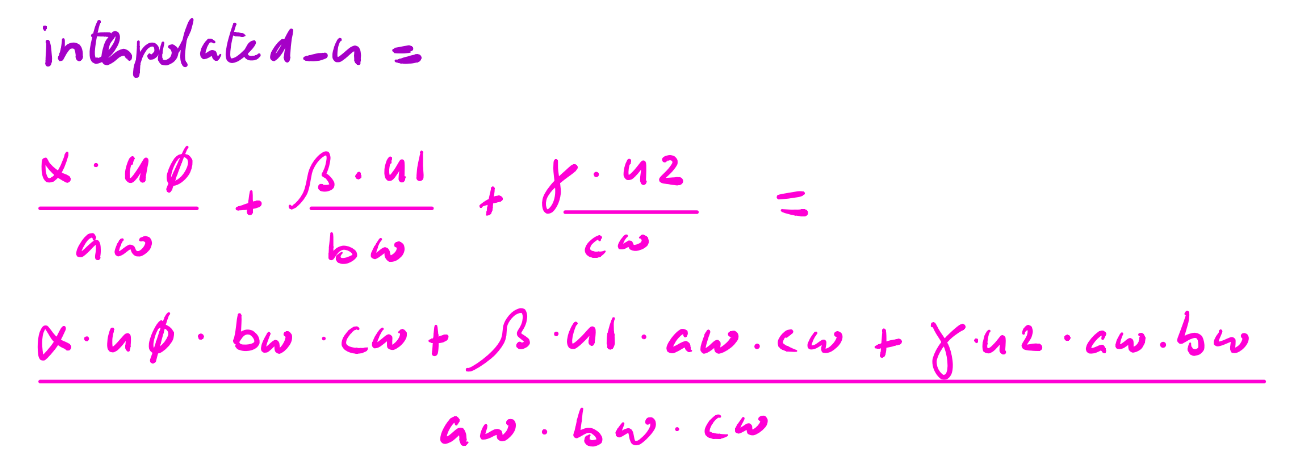 interpolated_u =
α · u0 / aw + β · u1 / bw + γ · u2 / cw =
α · u0 · bw · cw + β · u1 · aw · cw + γ · u2 · aw · bw
aw · bw · cw